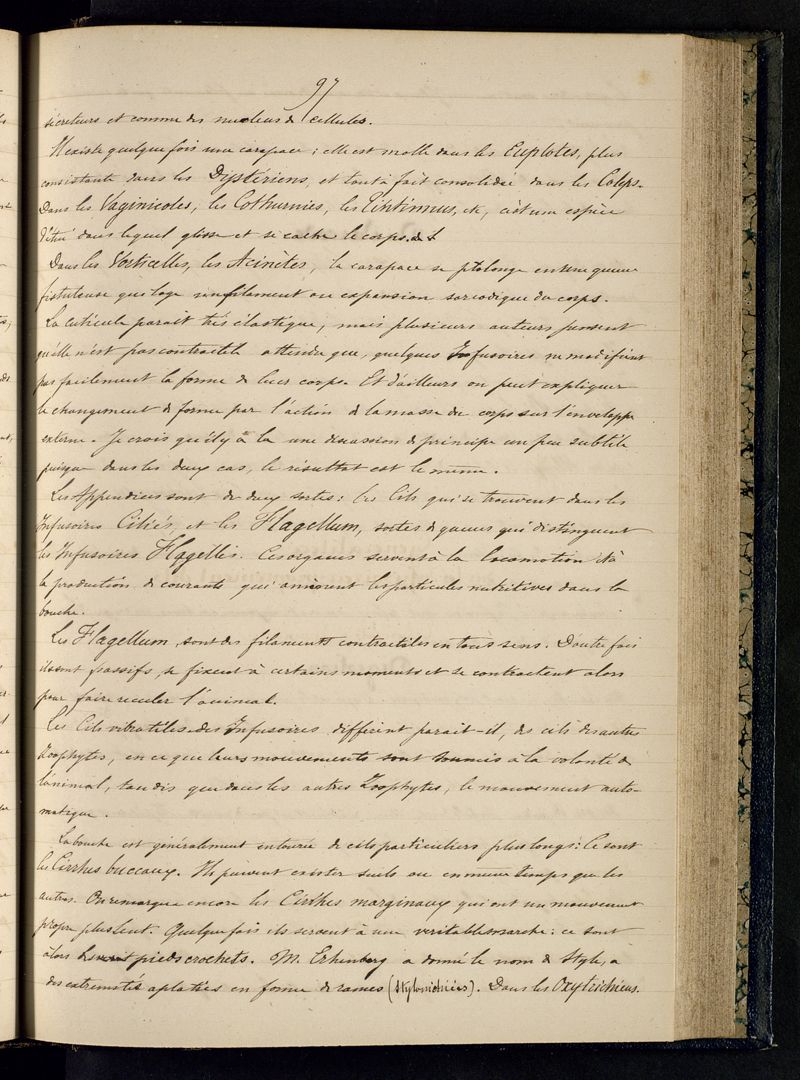 97
sécreteurs et comme des nucleus de cellules.
Il existe quelque fois une carapace : elle est molle dans les Euplotes, plus
consistante dans les Dystériens, et tout à fait consolidée dans les Coleps.
Dans les Vaginicoles, les Cothurnies, les Tintinnus, etc, c'est une espèce
d'étui dans lequel glisse et se cache le corps.
Dans les Vorticelles, les Acinètes, la carapace se prolonge en une queue
fistuleuse qui loge un filament ou expansion sarcodique du corps.
La cuticule parait très élastique, mais plusieurs auteurs pensent
qu'elle n'est pas contractile attendu que, quelques Infusoires ne modifient
pas facilement la forme de leur corps. Et d'ailleurs on peut expliquer
le changement de forme par l'action de la masse du corps sur l'enveloppe
externe. Je crois qu'il y a là une discussion de principe un peu subtile
puisque dans les deux cas, le résultat est le même.
Les Appendices sont de deux sortes : les Cils qui se trouvent dans les
Infusoires Ciliés, et les Flagellum, sortes de queues qui distinguent
les Infusoires Flagellés. Ces organes servent à la locomotion et à
la production de courants qui amènent les particules nutritives dans la
bouche.
Les Flagellum, sont des filaments contractiles en tous sens. D'autre fois
ils sont passifs, se fixent à certains moments et se contractent alors
pour faire reculer l'animal.
Les Cils vibratiles des Infusoires diffèrent parait-il, des cils des autres
Zoophytes, en ce que leurs mouvements sont soumis à la volonté de
l'animal, tandis que dans les autres Zoophytes, le mouvement auto-
matique.
La bouche est généralement entourée de cils particuliers plus longs : Ce sont
les Cirrhes buccaux. Ils peuvent exister seuls ou en même temps que les
autres. On remarque encore les Cirrhes marginaux qui ont un mouvement
propre plus lent. Quelque fois ils servent à une veritable marche : ce sont
alors pieds crochets. M. Erhenberg a donné le nom de Styles, a
des extremités aplaties en forme de rames (stylonichiées). Dans les Oxytrichiens.